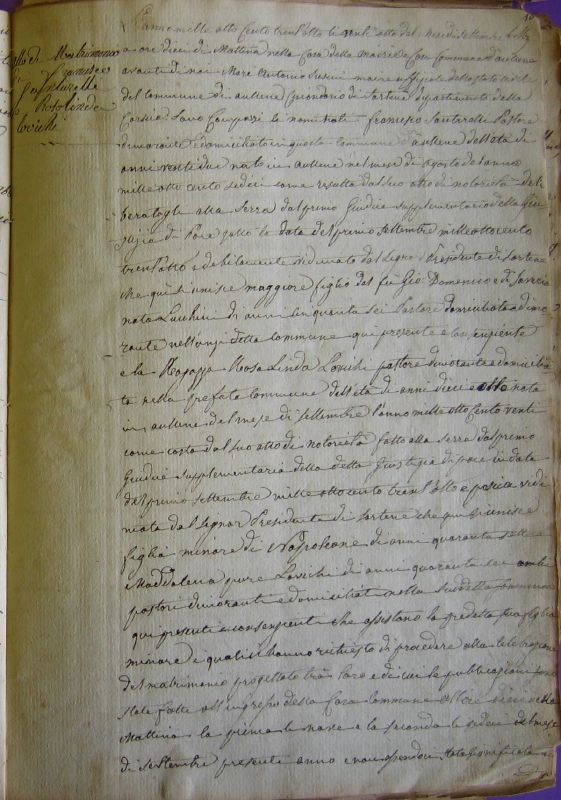 Atto di Matrimonio
Francesco
Santarelli
Rosalinda
Lovichi
L'anno mille otto cento trent'otto li venti otto del Mese di Settembre
a ore dieci di Mattina nella Casa della Maeria e Casa Commune d'aullene
avanti di noi Marc'Antonio Susini maire uffiziale dello stato civile
del commune di aullene Cantone di Sartene dipartimento della
Corsica Sono Comparsi li nominati Francesco Santarelli Pastore
dimorante e domiciliato in questa Commune d'aullene dell'età di
anni venti due nato in aullene nel mese di agosto del anno
mille otto cento sedici come resulta dal suo atto di notorietà deli
beratogli alla Serra dal primo Giudice supplementario della Giu
stizia di Pace sotto la data del primo settembre mille ottocento
trent'otto e debitamente del Signor Presidente di Sartene
che qui si unisce maggiore figlio del fù Gio: Domenico e di
nata Lucchini di anni cinquanta sei Pastore domiciliata e dimo
rante nell'anzi detta Commune qui presente e consenziente
e la Ragazza Rosa Linda Lovichi pastore dimorante e domicilia
ta nella prefata Commune dell'età di anni dieci e otto nata
in aullene del mese di settembre l'anno mille otto Cento venti
come costa dal suo atto di notorietà fatto alla Serra dal primo
Giudice supplementario della detta Giustizia di pace in data
del primo settembre mille otto cento trent'otto e
dal Signor Presidente di Sartene che qui si unisce
figlia minore di Napoleone di anni quaranta sette e
Maddalena pure Lovichi di anni quaranta sei ambi
pastori dimoranti e domiciliati nella suddetta Commune
qui presenti e consenzienti che assistano la predetta sua figlia
minore i quali ci hanno richiesto di procedere alla celebrazione
del matrimonio progettato tra loro e di cui le pubblicazioni sono
state fatte all'ingresso della Casa Commune alle ore dieci della
Mattina la prima le nove e la seconda le sedici del mese
di Settembre presente anno e non essendoci stata significata